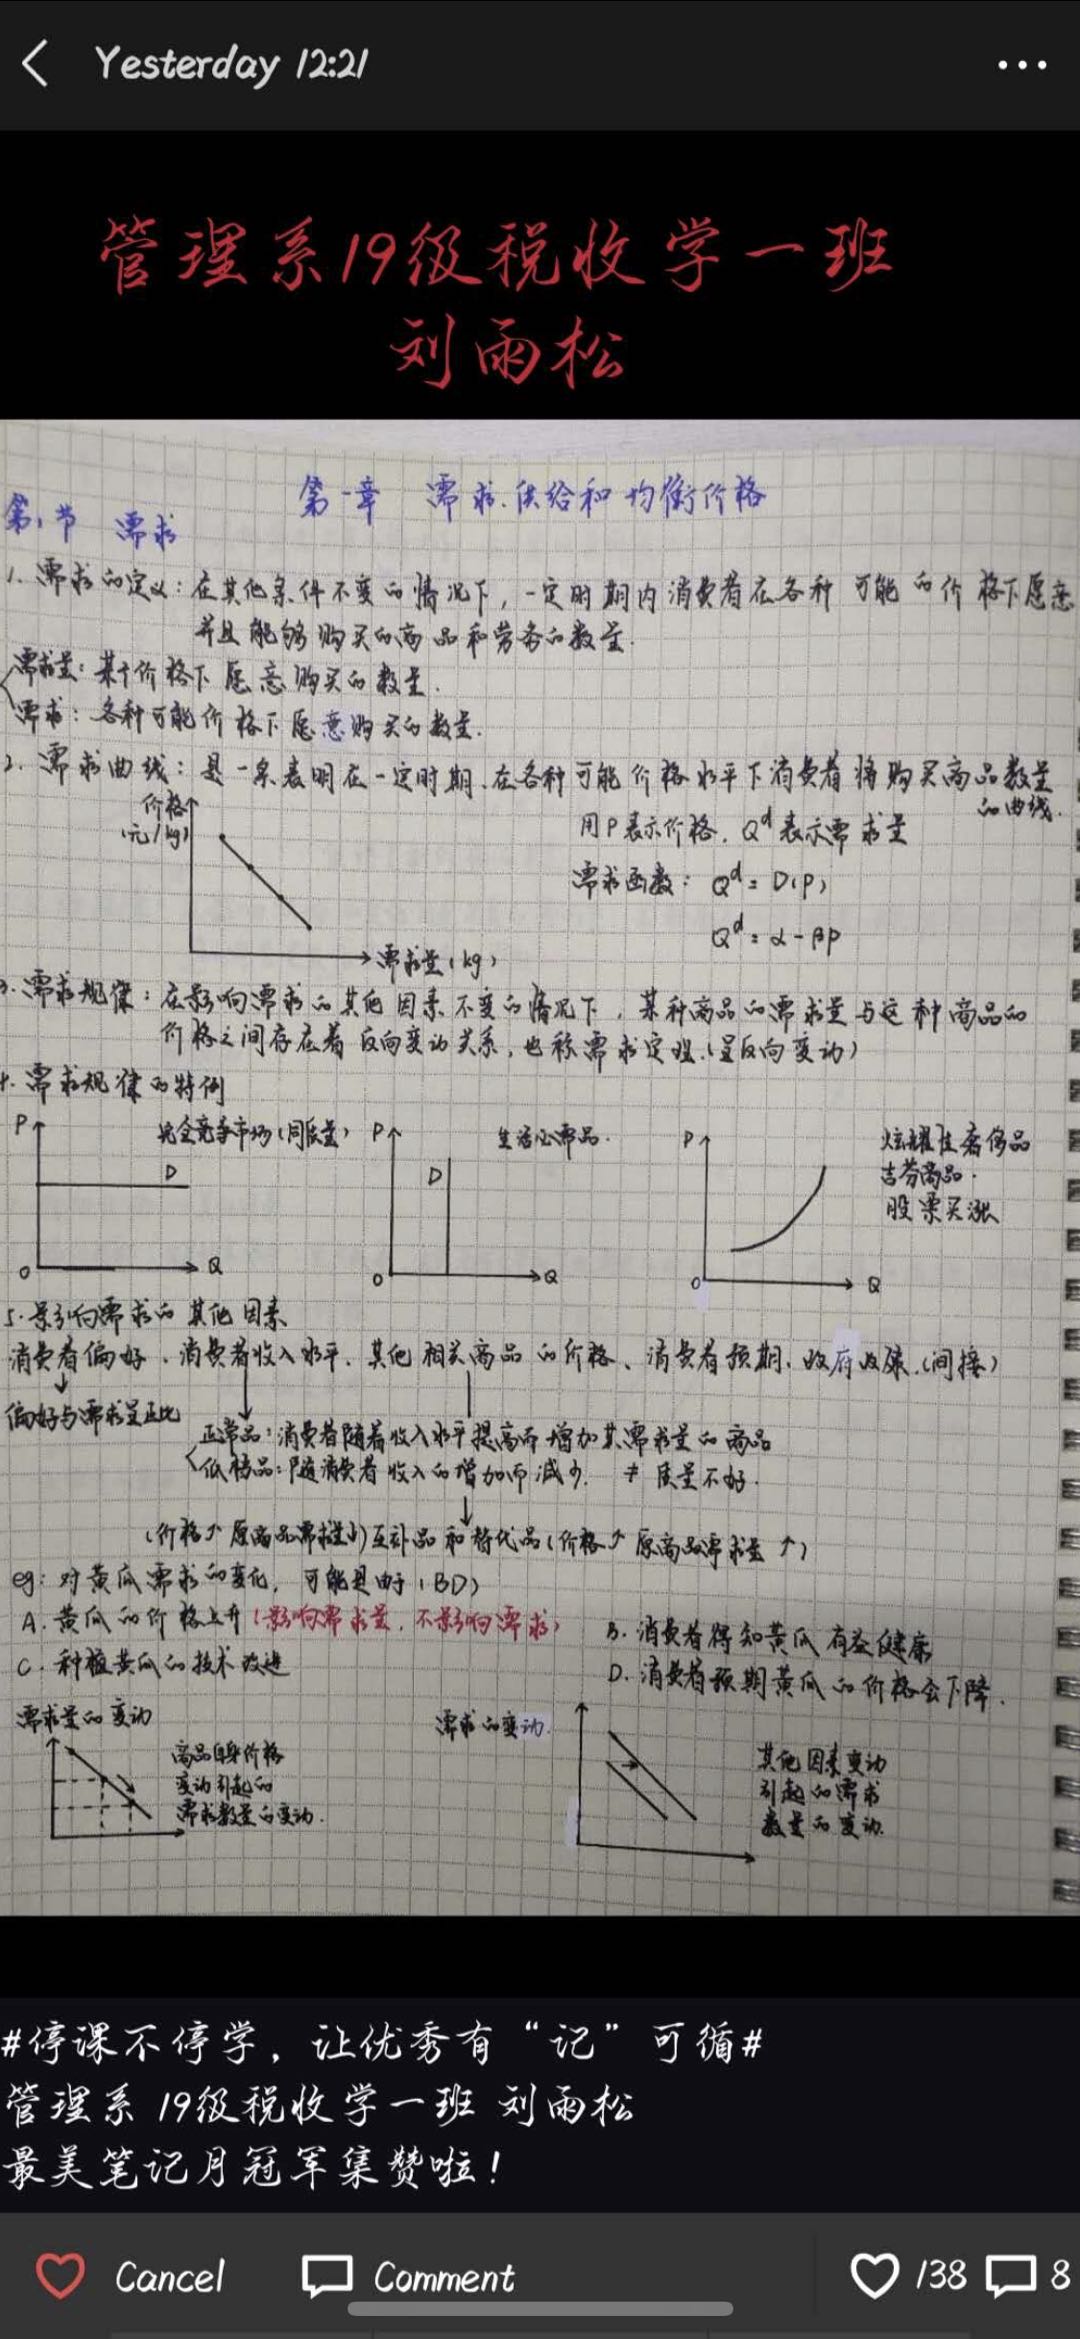 Yesterday 12:21
管理系19级税收学一班
刘雨松
第一章 需求.供给和均衡价格
第1节 需求
1. 需求的定义：在其他条件不变的情况下，一定时期内消费者在各种可能的价格下愿意
并且能够购买的商品和劳务的数量.
需求量：某个价格下愿意购买的数量.
需求：各种可能价格下愿意购买的数量.
2. 需求曲线：是一条表明在一定时期.在各种可能价格水平下消费者将购买商品数量
的曲线.
价格
(元/kg)
用P表示价格.Qᵈ表示需求量
需求函数：Qᵈ=D(P)
Qᵈ=α-βP
需求量(kg)
3. 需求规律：在影响需求的其他因素不变的情况下，某种商品的需求量与这种商品的
价格之间存在着反向变动关系，也称需求定理.(呈反向变动)
4. 需求规律的特例
P 完全竞争市场(同质量)
D
O Q
P 生活必需品.
D
O Q
P 炫耀性奢侈品
吉芬商品.
股票买涨
O Q
5. 影响需求的其他因素
消费者偏好、消费者收入水平、其他相关商品的价格、消费者预期、政府政策.(间接)
偏好与需求呈正比
正常品：消费者随着收入水平提高而增加其需求量的商品
低档品：随消费者收入的增加而减少. ≠ 质量不好.
(价格↗ 原商品需求量↓)互补品和替代品(价格↗ 原商品需求量↑)
eg：对黄瓜需求的变化，可能是由于(BD)
A. 黄瓜的价格上升(影响需求量，不影响需求)
B. 消费者得知黄瓜有益健康
C. 种植黄瓜的技术改进
D. 消费者预期黄瓜的价格会下降.
需求量的变动
商品自身价格
变动引起的
需求数量的变动.
需求的变动.
其他因素变动
引起的需求
数量的变动.
#停课不停学，让优秀有“记”可循#
管理系 19级税收学一班 刘雨松
最美笔记月冠军集赞啦！
Cancel
Comment
138
8